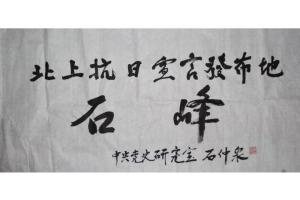 北上抗日宣言發布地
石峰
中共党史研究室 石仲泉